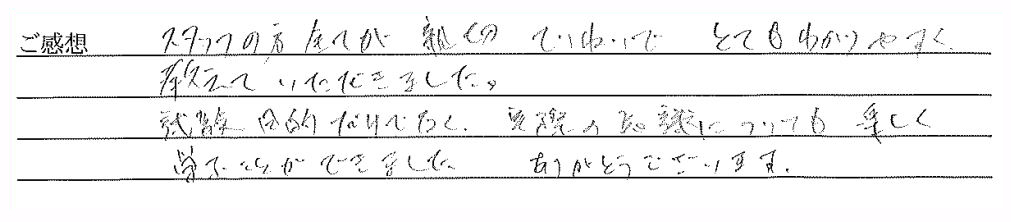 ご感想 スタッフの方全てが 親切 ていねいで とてもわかりやすく
教えて いただきました。
試験目的だけでなく、実際の知識についても 楽しく
学ぶことができました ありがとうございます。